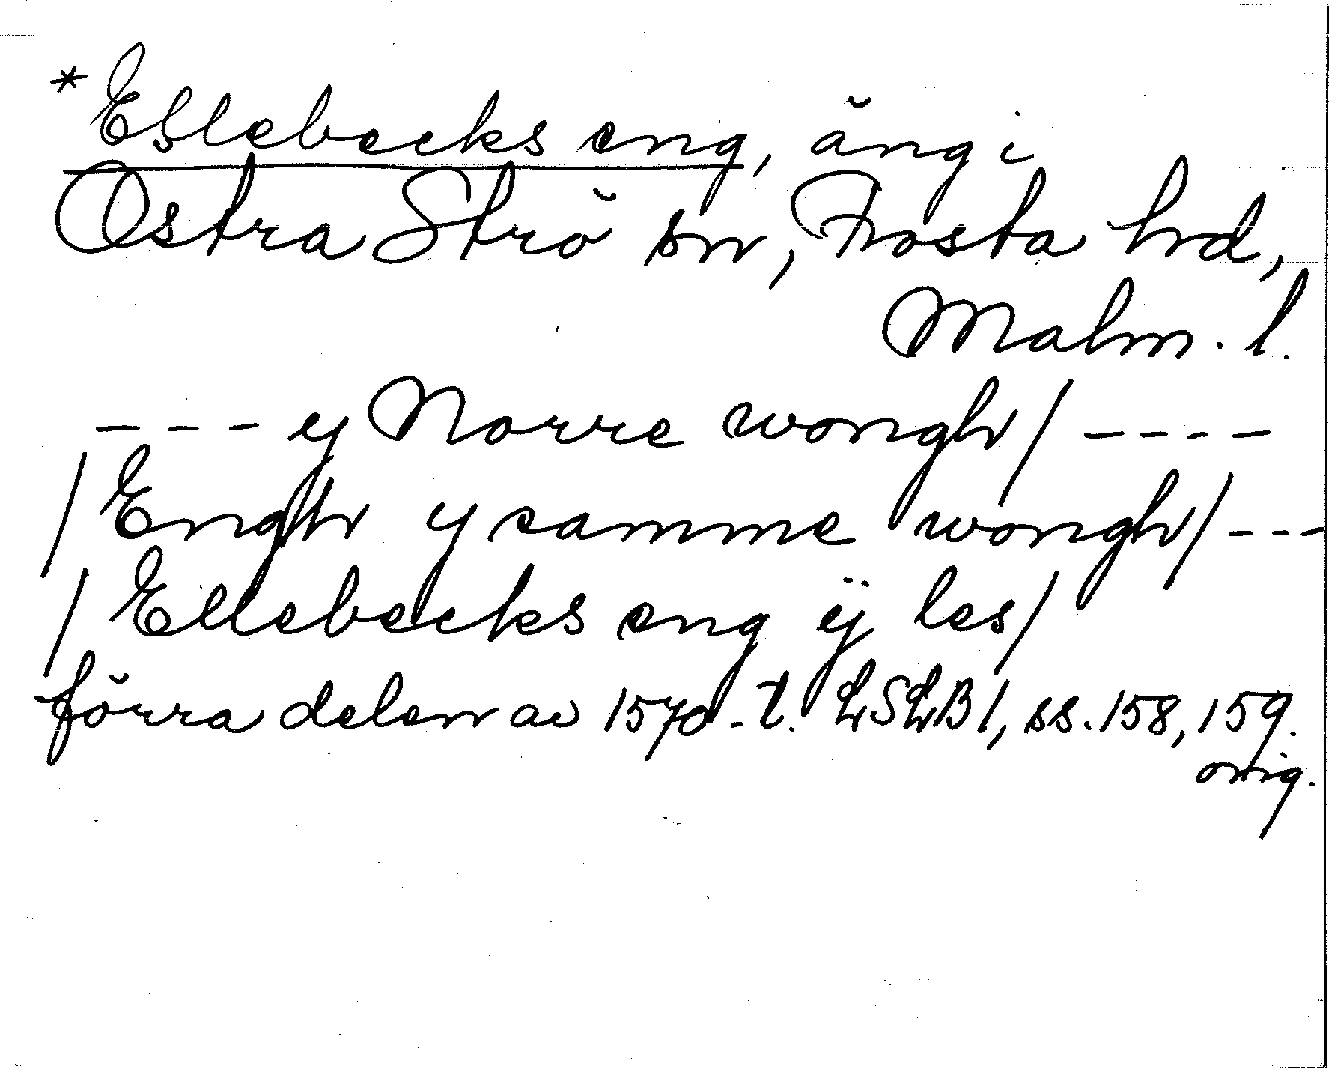 *Ellebecks eng, äng i
Östra Strö sn, Frosta hd,
Malm. l.
--- y Norre wongh/ ----
/Engh y samme wongh/ ---
/Ellebecks eng ÿ les/
förra delen av 1570-t. LSLB 1, ss. 158, 159.
orig.